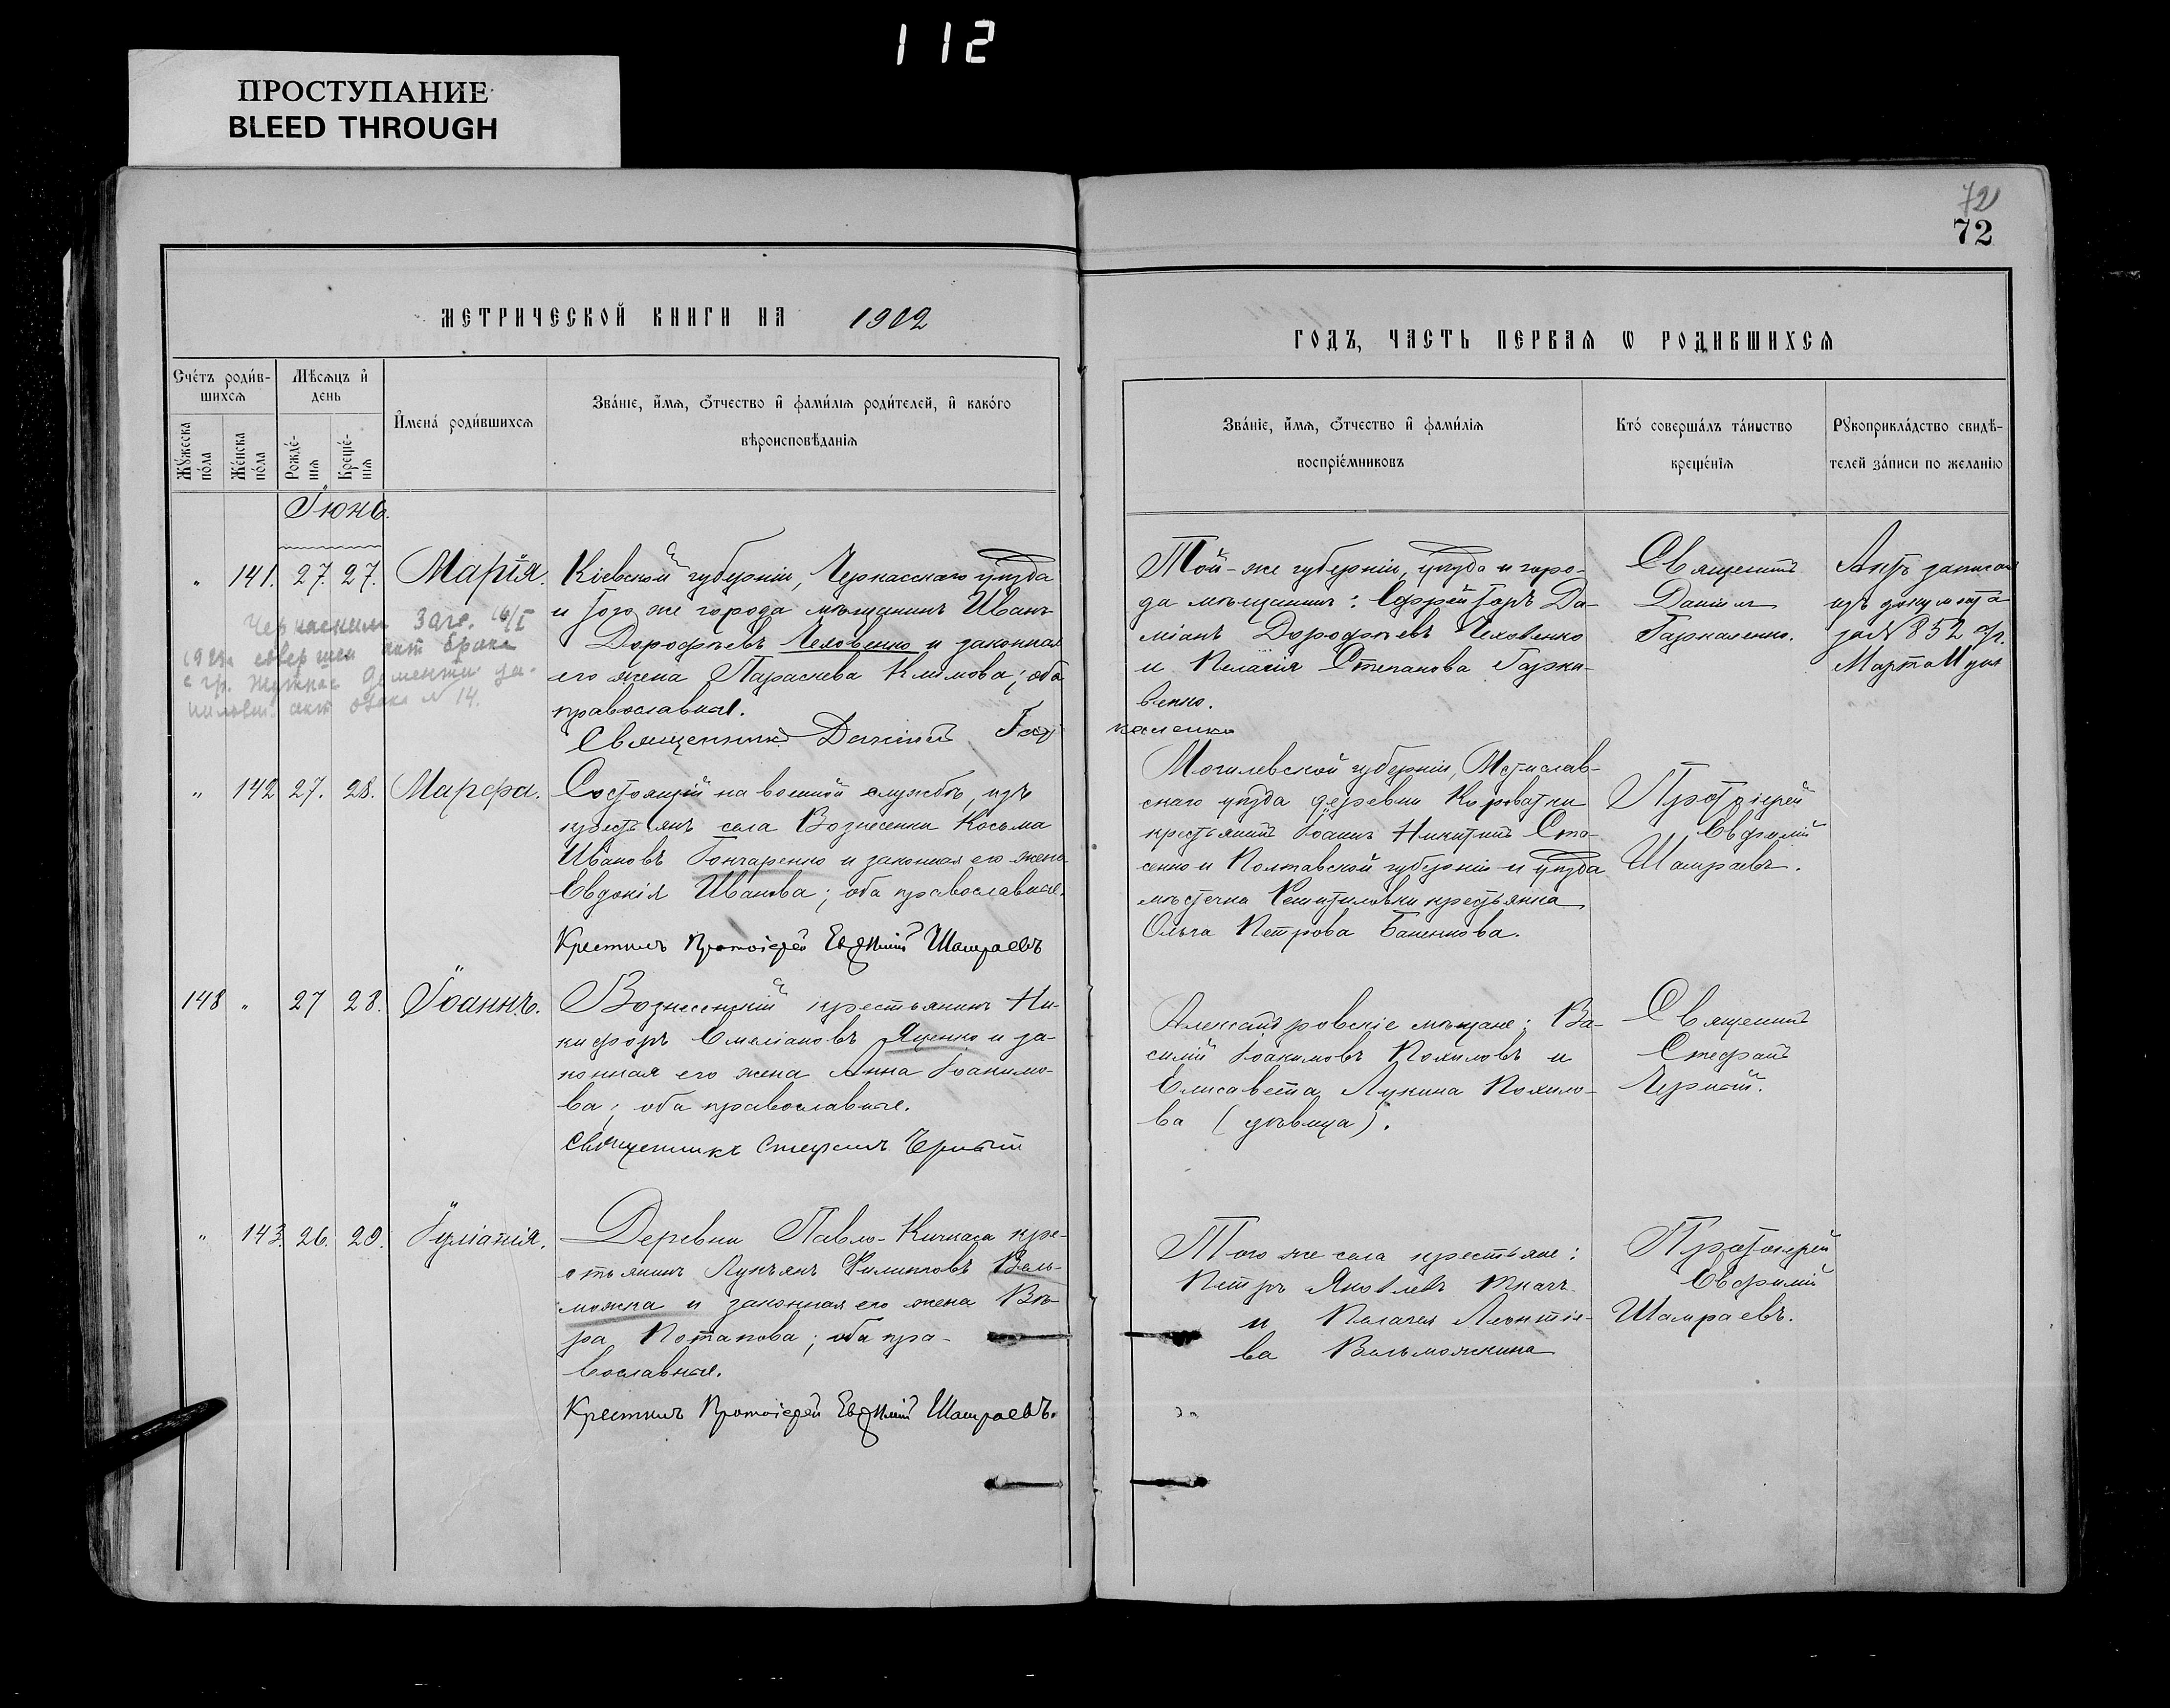 112
ПРОСТУПАНИЕ
BLEED THROUGH
72
72
МЕТРИЧЕСКОЙ КНИГИ НА 1902
ГОДЪ, ЧАСТЬ ПЕРВАЯ Ѡ РОДИВШИХСЯ
Счетъ родив-
шихся
Мѣсяцъ и
день
Мужеска
пола
Женска
пола
Рожде-
нія
Креще-
нія
Имена родившихся
Званіе, имя, отчество и фамилія родителей, и какого
вѣроисповѣданія
Званіе, имя, отчество и фамилія
воспріемниковъ
Кто совершалъ таинство
крещенія
Рукоприкладство свидѣ-
телей записи по желанію
Іюнь.
" 141. 27. 27. Марія.
Кіевской губерніи, Черкасскаго уѣзда
и того же города мѣщанинъ Иванъ
Дорофѣевъ Чеховенко и законная
его жена Параскева Климова; оба
православные.
Священникъ Даніилъ Гар
каленко
Той-же губерніи, уѣзда и горо-
да мѣщанинъ: Ефрейторъ Да-
міанъ Дорофѣевъ Чеховенко
и Пелагія Степанова
венко.
Священникъ
Даніилъ
Гаркаленко.
Актъ записан
изъ документа
за № 852
Марта
загс. 16/I
совершен акт брака
с гр.
акт о браке N 14.
" 142 27. 28. Марфа.
Состоящій на военной службѣ, изъ
крестьянъ села Вознесенки Косьма
Ивановъ Гончаренко и законная его жена
Евдокія Иванова; оба православные.
Крестилъ Протоіерей Евфимій Шамраевъ
Могилевской губерніи, Мстислав-
скаго уѣзда деревни Короватки
крестьянинъ Іоаннъ Никитинъ Ста-
сенко и Полтавской губерніи и уѣзда
мѣстечка Решетиловки крестьянка
Ольга Петрова Баненкова.
Протоіерей
Евфимій
Шамраевъ.
148 " 27 28. Іоаннъ.
Вознесенскій крестьянинъ Ни-
кифоръ Емеліановъ Яценко и за-
конная его жена Анна Іоакимо-
ва; оба православные.
Священникъ Стефанъ Черный
Александровскіе мѣщане: Ва-
силій Іоакимовъ Похиловъ и
Елисавета Лукина Похило-
ва (дѣвица).
Священникъ
Стефанъ
Черный.
" 143. 26. 29. Іуліанія.
Деревни Павло-Кичкаса кре-
стьянинъ Лукьянъ Филипповъ Вель-
можка и законная его жена Вѣ-
ра Потапова; оба пра-
вославные.
Крестилъ Протоіерей Евфимій Шамраевъ.
Того же села крестьяне:
Петръ Яковлевъ Ткачъ
и Пелагея Леонтіе-
ва Вельможкина
Протоіерей
Евфимій
Шамраевъ.